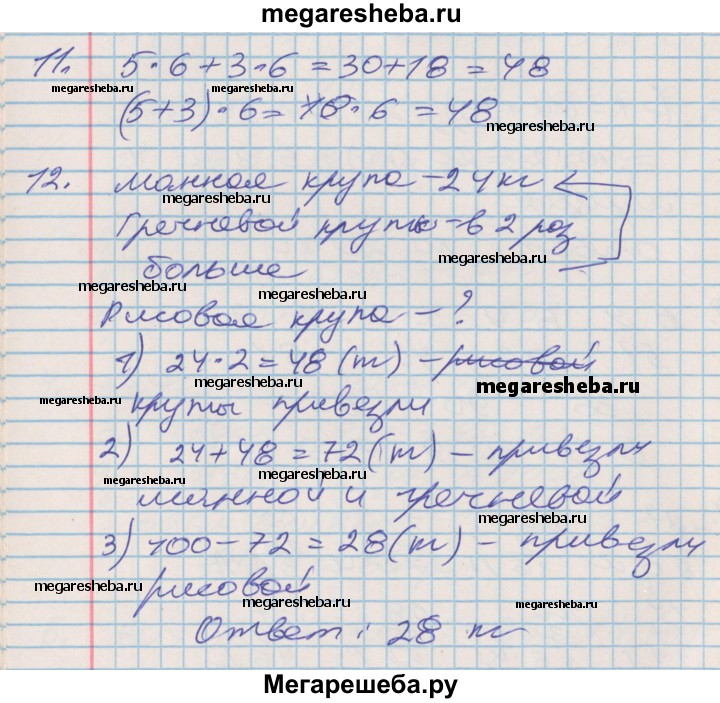 megaresheba.ru
11. 5·6+3·6=30+18=48
megaresheba.ru megaresheba.ru
(5+3)·6= ·6=48
megaresheba.ru
12. манная крупа - 24 кг
megaresheba.ru megaresheba.ru
Гречневой крупы - в 2 раз
megaresheba.ru
больше
megaresheba.ru megaresheba.ru
Рисовая крупа - ?
megaresheba.ru
1) 24·2=48 (т) - рисовой
megaresheba.ru megaresheba.ru
megaresheba.ru
крупы привезли
megaresheba.ru
2) 24+48=72 (т) - привезли
megaresheba.ru megaresheba.ru
манной и гречневой
megaresheba.ru
3) 100-72=28 (т) - привезли
megaresheba.ru megaresheba.ru
рисовой
megaresheba.ru megaresheba.ru
Ответ: 28 т
megaresheba.ru
Мегарешеба.ру